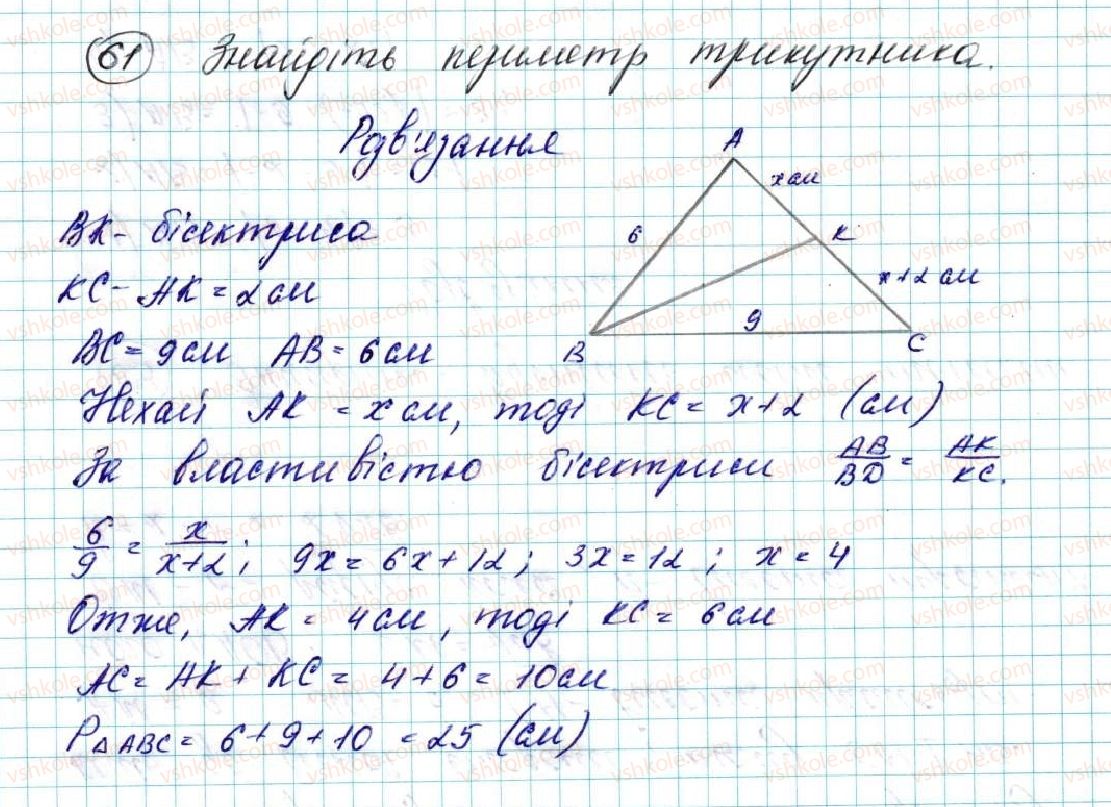 61 Знайдіть периметр трикутника.
Розв'язання
A
x см
BK - бісектриса
6
K
KC - AK = 2 см
x+2 см
9
BC = 9 см AB = 6 см
B
C
Нехай AK = x см, тоді KC = x+2 (см)
За властивістю бісектриси AB/BD = AK/KC.
6/9 = x/x+2; 9x = 6x+12; 3x = 12; x = 4
Отже, AK = 4 см, тоді KC = 6 см
AC = AK + KC = 4+6 = 10 см
P△ABC = 6+9+10 = 25 (см)
vshkole.com